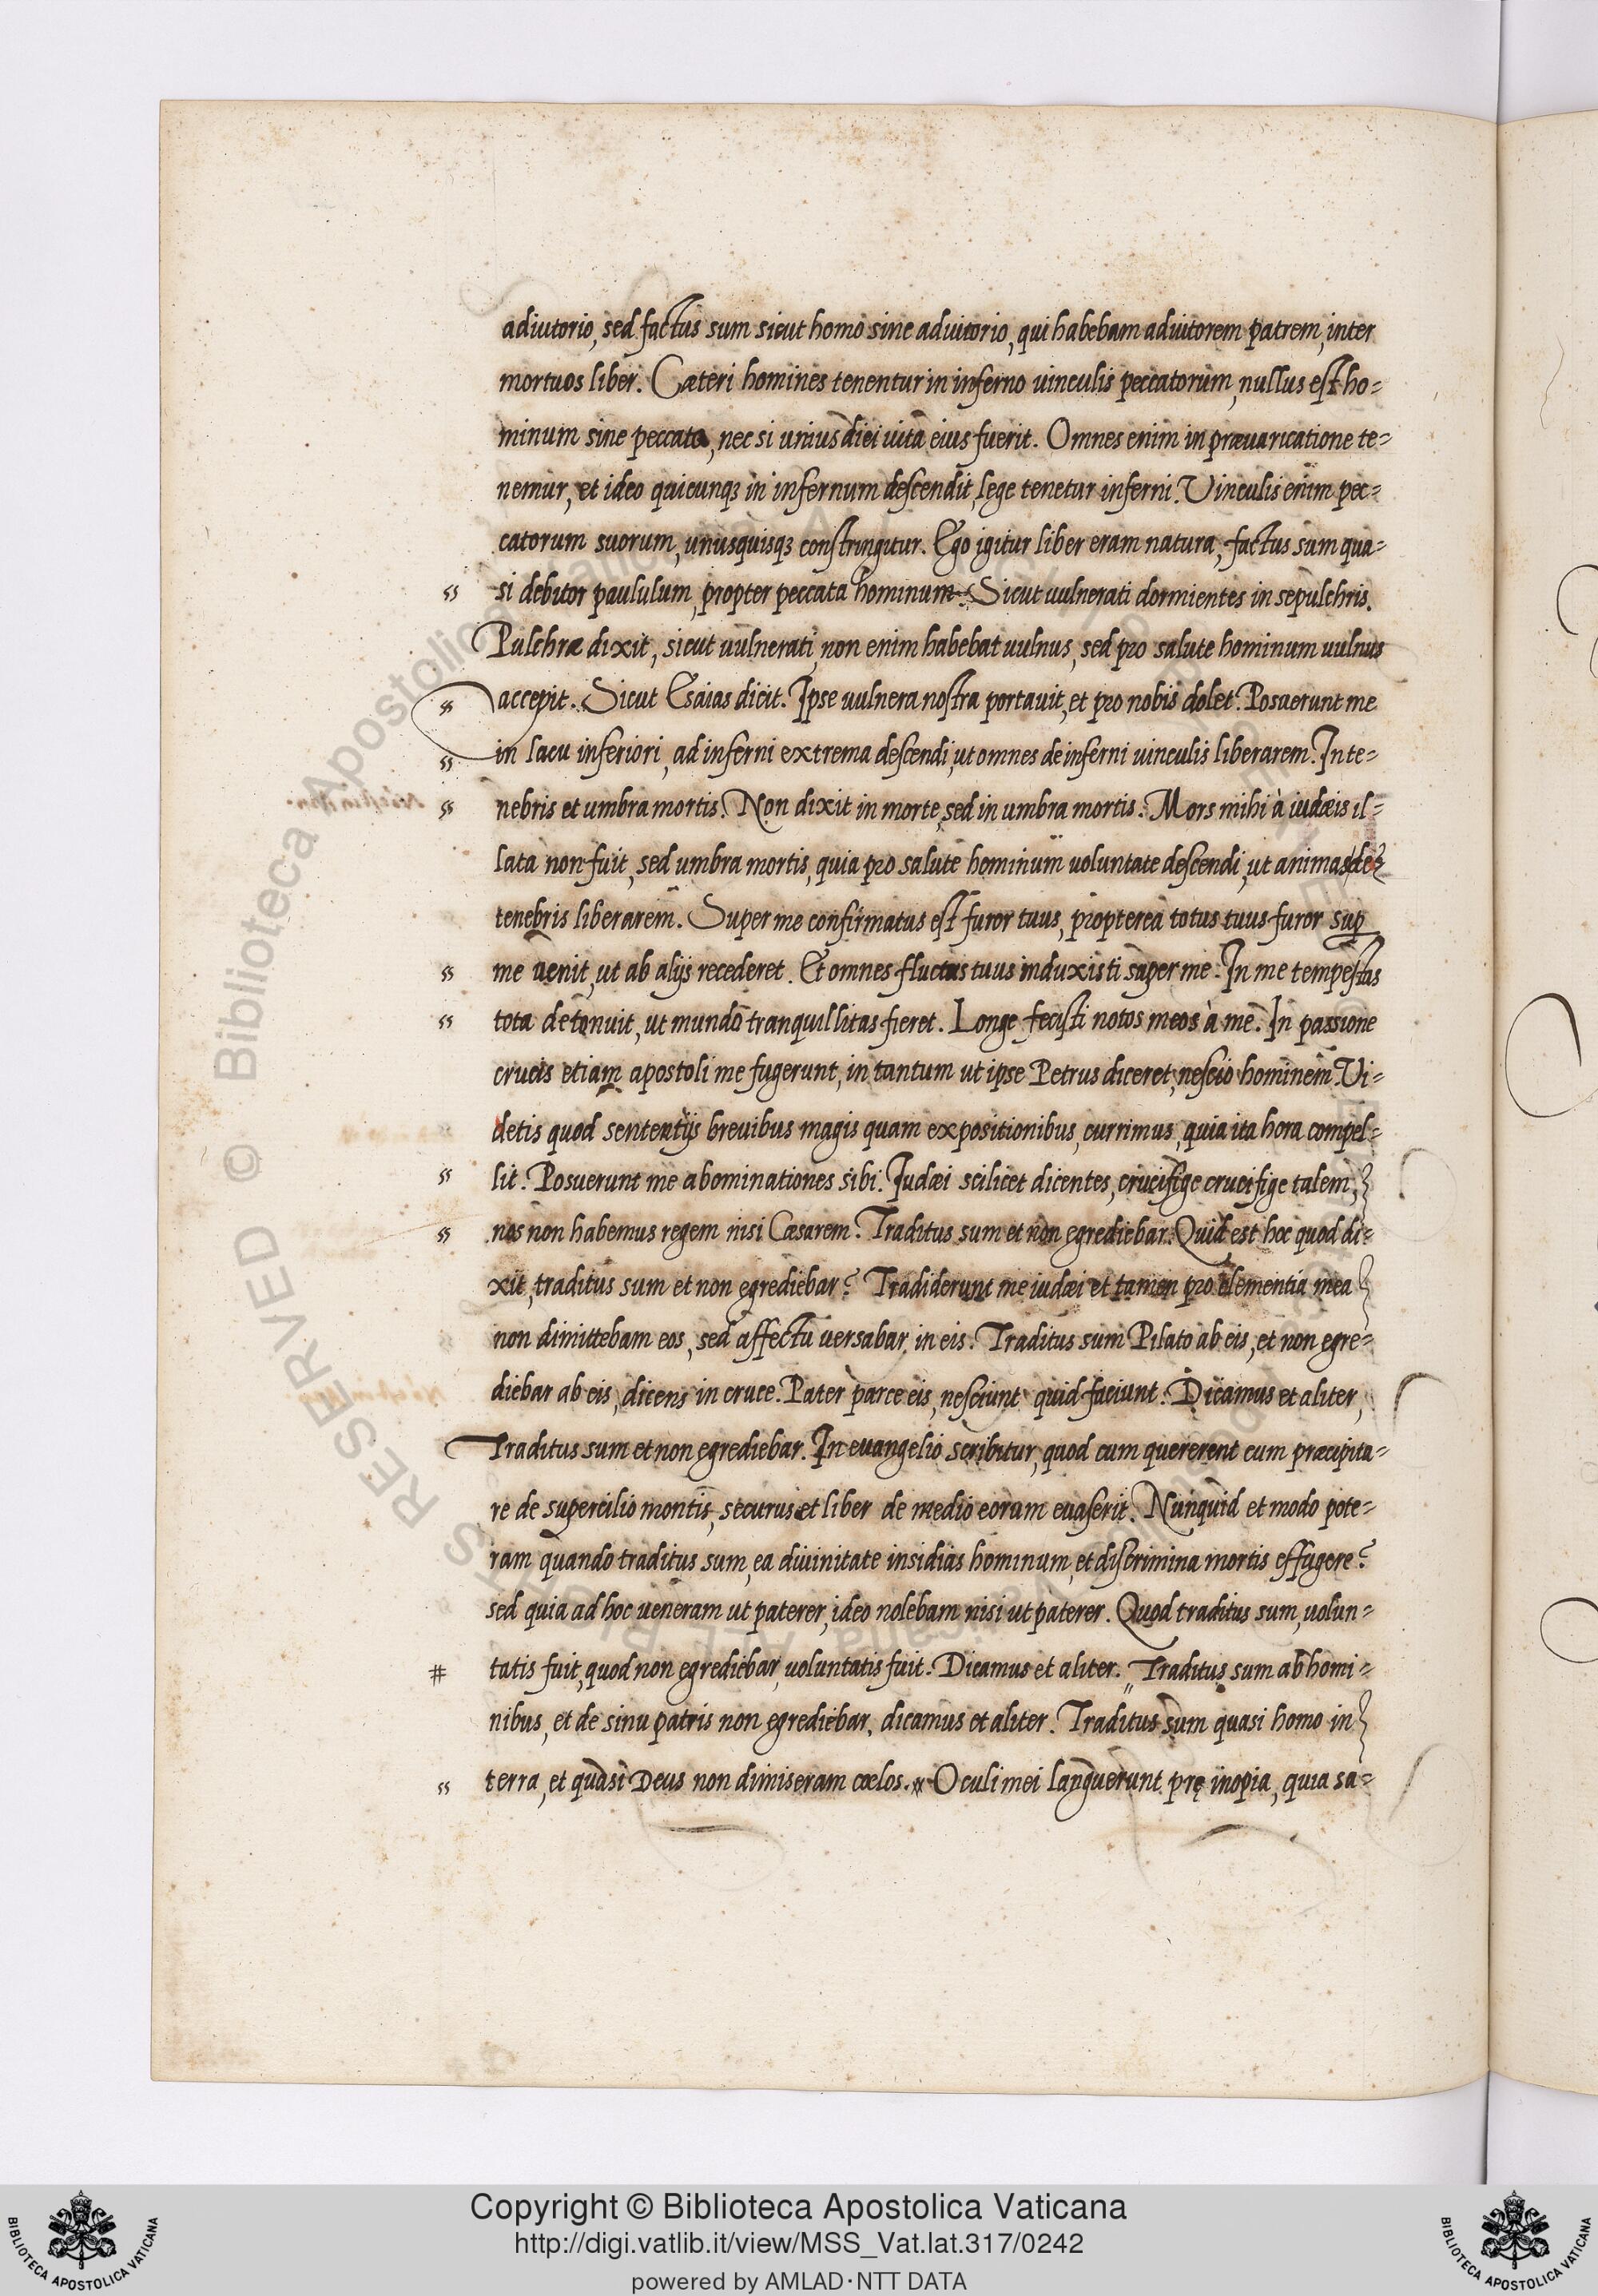 adiutorio, sed factus sum sicut homo sine adiutorio, qui habebam adiutorem patrem, inter
mortuos liber. Cæteri homines tenentur in inferno uinculis peccatorum, nullus est ho=
minum sine peccato, nec si unius diei uita eius fuerit. Omnes enim in præuaricatione te=
nemur, et ideo quicunqꝫ in infernum descendit, lege tenetur inferni. Vinculis enim pec=
catorum suorum, unusquisqꝫ constringitur. Ego igitur liber eram natura, factus sum qua=
si debitor paululum, propter peccata hominum. Sicut uulnerati dormientes in sepulchris.
Pulchræ dixit, sicut uulnerati, non enim habebat uulnus, sed pro salute hominum uulnus
accepit. Sicut Esaias dicit. Ipse uulnera nostra portauit, et pro nobis dolet. Posuerunt me
in lacu inferiori, ad inferni extrema descendi, ut omnes de inferni uinculis liberarem. In te=
nebris et umbra mortis. Non dixit in morte, sed in umbra mortis. Mors mihi à iudæis il=
lata non fuit, sed umbra mortis, quia pro salute hominum uoluntate descendi, ut animas de
tenebris liberarem. Super me confirmatus est furor tuus, propterea totus tuus furor sup
me uenit, ut ab alijs recederet. Et omnes fluctus tuus induxisti super me. In me tempestas
tota detonuit, ut mundo tranquillitas fieret. Longe fecisti notos meos à me. In passione
crucis etiam apostoli me fugerunt, in tantum ut ipse Petrus diceret, nescio hominem. Vi=
detis quod sententijs breuibus magis quam expositionibus, currimus, quia ita hora compel=
lit. Posuerunt me abominationes sibi. Iudæi scilicet dicentes, crucifige crucifige talem,
nos non habemus regem nisi Cæsarem. Traditus sum et non egrediebar. Quid est hoc quod di=
xit, traditus sum et non egrediebar? Tradiderunt me iudæi et tamen pro clementia mea
non dimittebam eos, sed affectu uersabar in eis. Traditus sum Pilato ab eis, et non egre=
diebar ab eis, dicens in cruce. Pater parce eis, nesciunt quid faciunt. Dicamus et aliter,
Traditus sum et non egrediebar. In euangelio scribitur, quod cum quererent eum præcipita=
re de supercilio montis, securus et liber de medio eorum euaserit. Nunquid et modo pote=
ram quando traditus sum, ea diuinitate insidias hominum, et discrimina mortis effugere?
sed quia ad hoc ueneram ut paterer, ideo nolebam nisi ut paterer. Quod traditus sum, uolun=
# tatis fuit, quod non egrediebar, uoluntatis fuit. Dicamus et aliter. „Traditus sum ab homi=
nibus, et de sinu patris non egrediebar, dicamus et aliter. Traditus sum quasi homo in
terra, et quasi Deus non dimiseram cœlos. * Oculi mei languerunt prę inopia, quia sa=
Copyright © Biblioteca Apostolica Vaticana
http://digi.vatlib.it/view/MSS_Vat.lat.317/0242
powered by AMLAD·NTT DATA
BIBLIOTECA APOSTOLICA VATICANA
BIBLIOTECA APOSTOLICA VATICANA